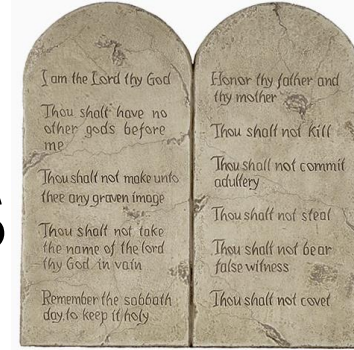 I am the Lord thy God
Thou shalt have no
other gods before
me
Thou shall not make unto
thee any graven image
Thou shall not take
the name of the lord
thy God in vain
Remember the sabbath
day, to keep it holy
Honor thy father and
thy mother
Thou shall not kill
Thou shall not commit
adultery
Thou shall not steal
Thou shall not bear
false witness
Thou shall not covet